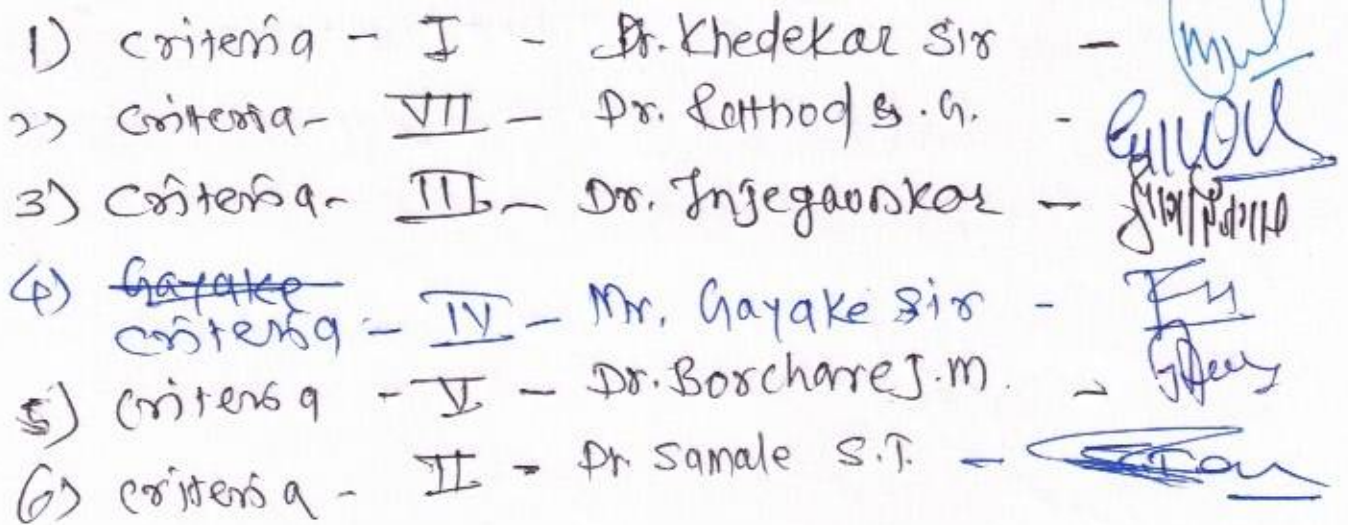 1) Criteria - I - Dr. Khedekar Sir -
2) Criteria - VII - Dr. Rathod S. G. -
3) Criteria - III - Dr. Injegaonkar -
4) Gayake
Criteria - IV - Mr. Gayake Sir -
5) Criteria - V - Dr. Borchare J.M. -
6) Criteria - II - Dr Samale S.T. -